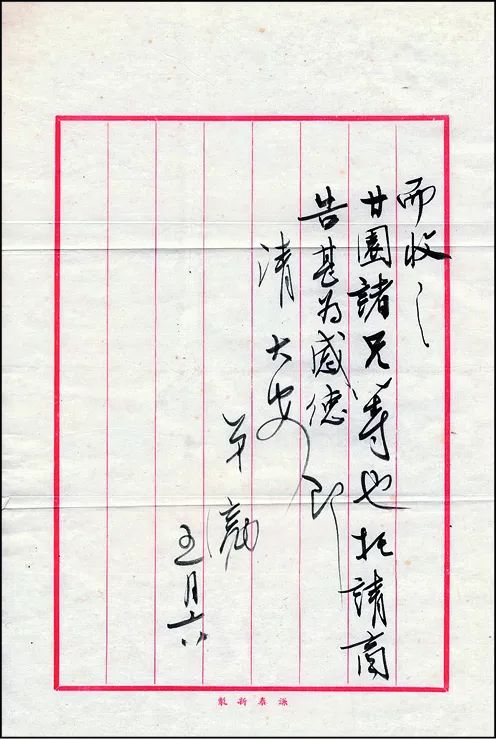 而收之
甘園諸兄也托請高
告甚為感德即
清大安
弟
五月六
謙泰新製